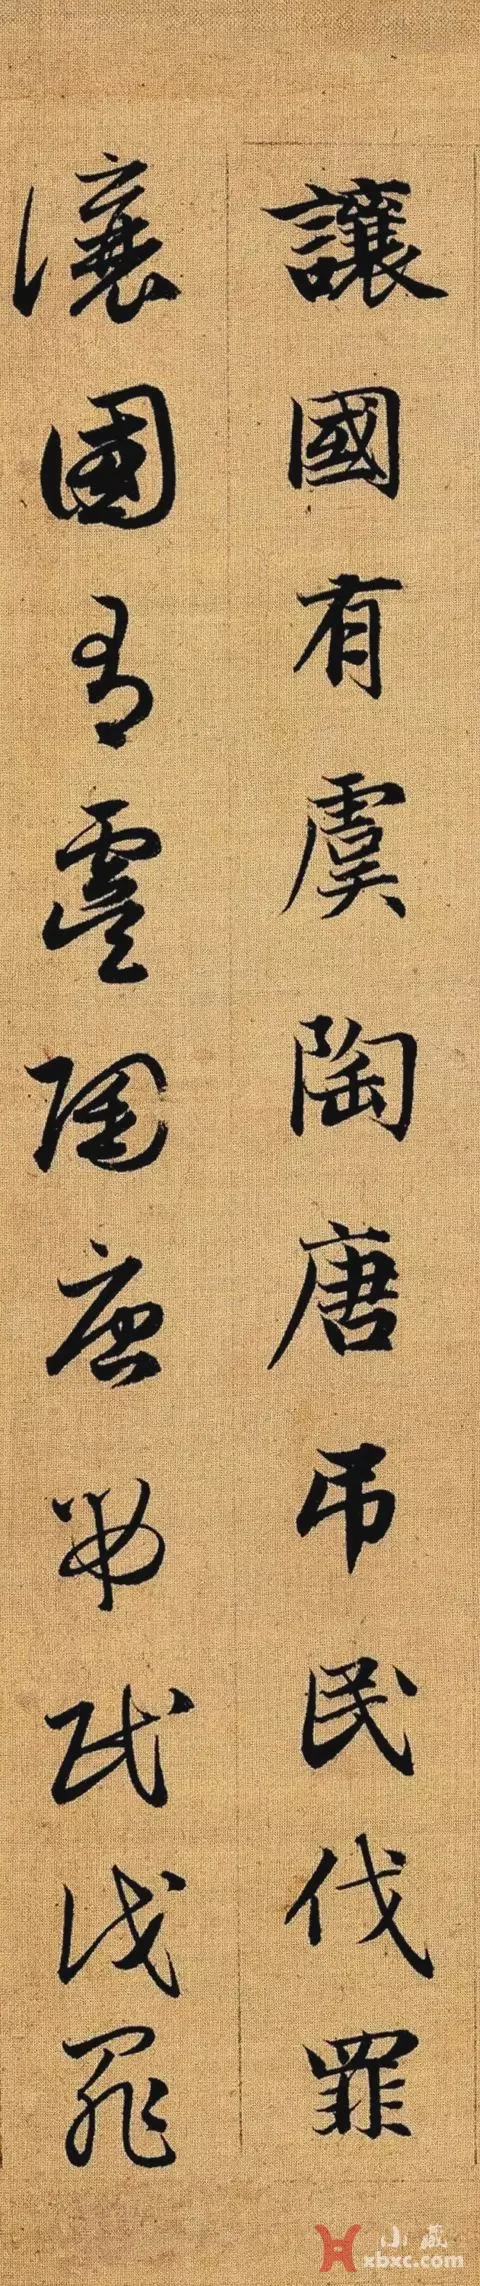 讓國有虞陶唐弔民伐罪
讓國有虞陶唐弔民伐罪
小藏
xbxc.com